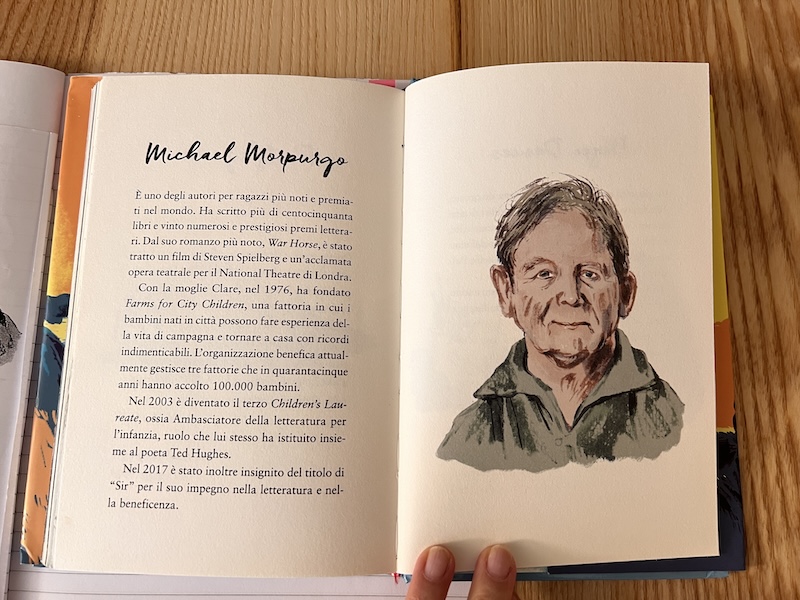 Michael Morpurgo
È uno degli autori per ragazzi più noti e premia-
ti nel mondo. Ha scritto più di centocinquanta
libri e vinto numerosi e prestigiosi premi lettera-
ri. Dal suo romanzo più noto, War Horse, è stato
tratto un film di Steven Spielberg e un'acclamata
opera teatrale per il National Theatre di Londra.
Con la moglie Clare, nel 1976, ha fondato
Farms for City Children, una fattoria in cui i
bambini nati in città possono fare esperienza del-
la vita di campagna e tornare a casa con ricordi
indimenticabili. L'organizzazione benefica attual-
mente gestisce tre fattorie che in quarantacinque
anni hanno accolto 100.000 bambini.
Nel 2003 è diventato il terzo Children's Lau-
reate, ossia Ambasciatore della letteratura per
l'infanzia, ruolo che lui stesso ha istituito insie-
me al poeta Ted Hughes.
Nel 2017 è stato inoltre insignito del titolo di
“Sir” per il suo impegno nella letteratura e nel-
la beneficenza.